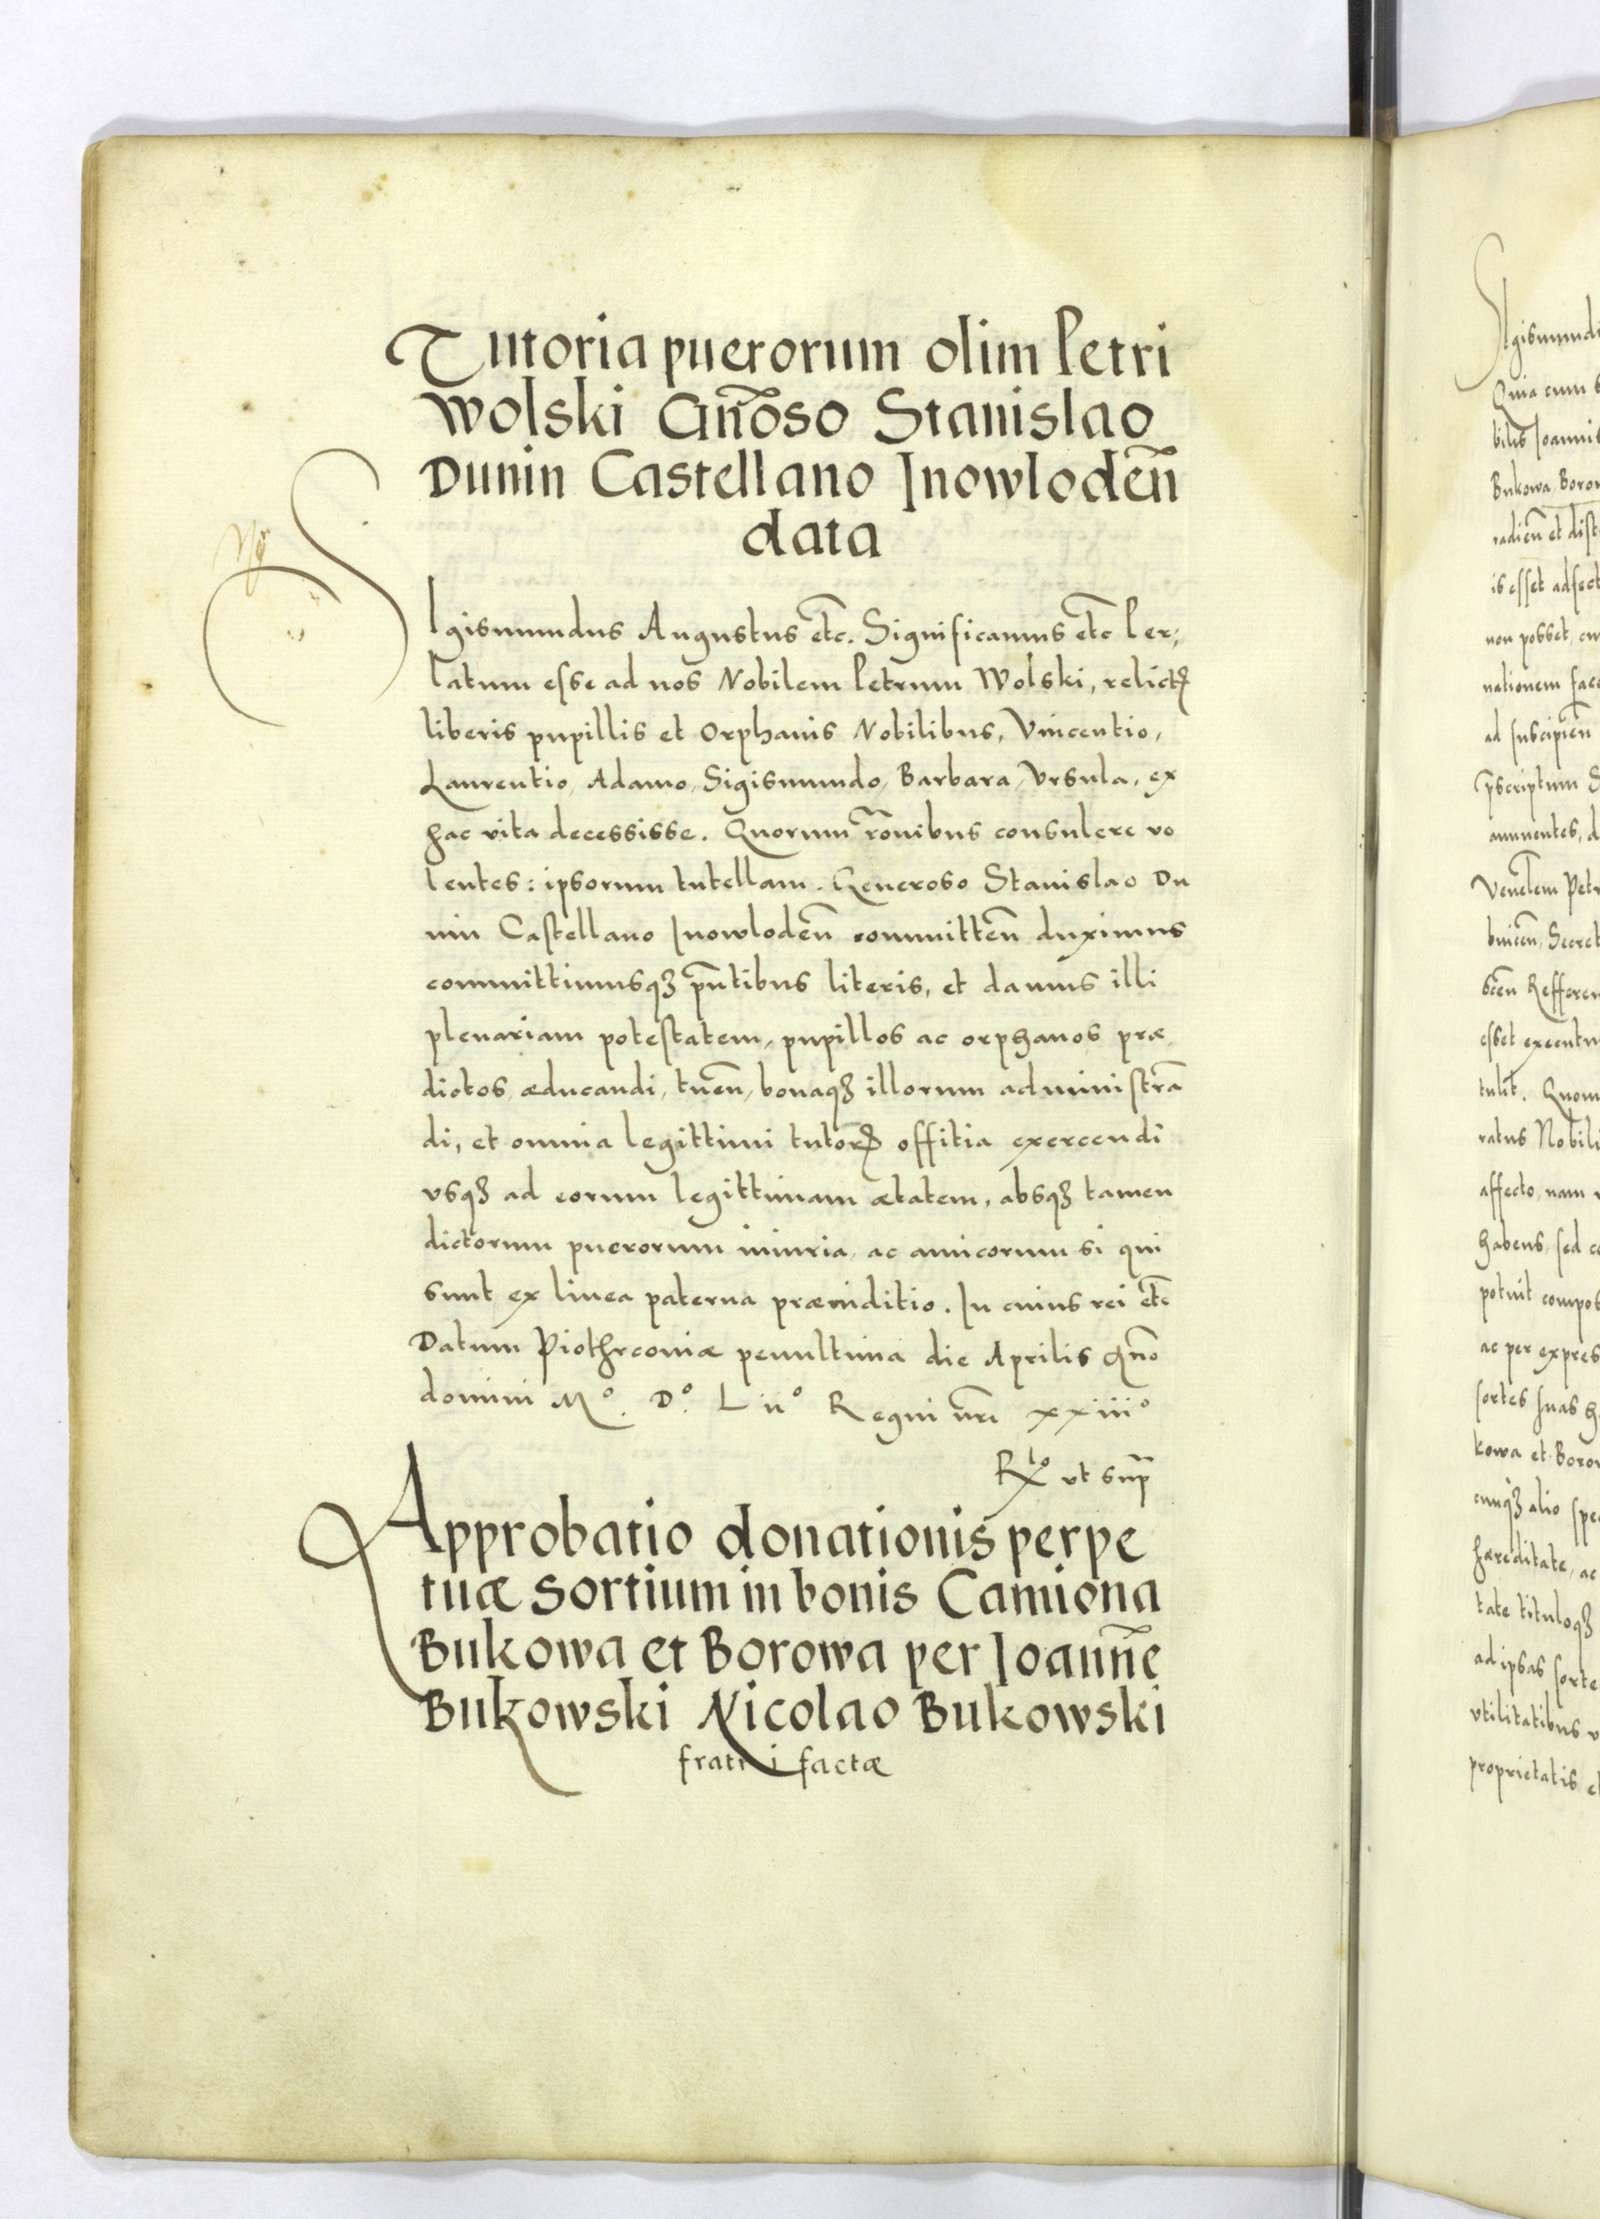 Tutoria puerorum olim Petri
Wolski Gn̄oso Stanislao
Dunin Castellano Inowloden̄
data
SIgismundus Augustus etc̄. Significamus etc̄ Per,
latum esse ad nos Nobilem Petrum Wolski, relictꝭ
liberis pupillis et Orphanis Nobilibus, Vincentio,
Laurentio, Adamo, Sigismundo, Barbara, Vrsula, ex
hac vita decessisse. Quorum r̄onibus consulere vo
lentes: ipsorum tutellam. Generoso Stanislao Du
nin Castellano Inowloden̄ committen̄ duximus
committimusqꝫ pn̄tibus literis, et damus illi
plenariam potestatem, pupillos ac orphanos præ
dictos, æducandi, tuen̄, bonaqꝫ illorum administrā
di, et omnia legittimi tutorꝭ offitia exercendi
vsqꝫ ad eorum legittimam ætatem, absqꝫ tamen
dictorum puerorum iniuria, ac amicorum si qui
sunt ex linea paterna præiuditio. In cuius rei etc̄
Datum Piothrcoviæ penultima die Aprilis Anno
domini Mº. Dº. Liiº Regni nr̄i xxiiiº
Rᵗᵒ vt sup̄
Approbatio donationis perpe
tuæ sortium in bonis Camiona
Bukowa et Borowa per Ioannē
Bukowski Nicolao Bukowski
fratri factæ
SIgismundu
Quia cum
bilis Ioannis
Bukowa Borow
radien̄ et dist
is esset adfect
non posset, cu
nationem fac
ad suscipien̄
p̄scriptum S
annuentes, d
Petr
Secret
Refferen
esset executu
tulit. Quom
ratus Nobili
affecto, nam
habens, sed c
potuit compos
ac per expres
sortes suas h
kowa et Borow
cunqꝫ alio spe
hæreditate, ac
tate tituloqꝫ
ad ipsas sorte
vtilitatibus v
proprietatis et